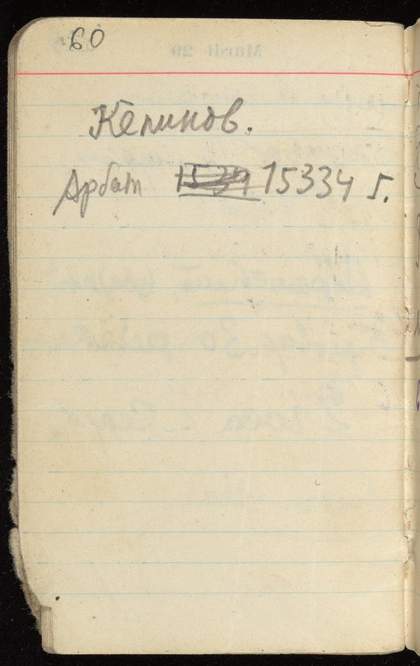 60
Келинов.
Арбат 1539 15334 г.